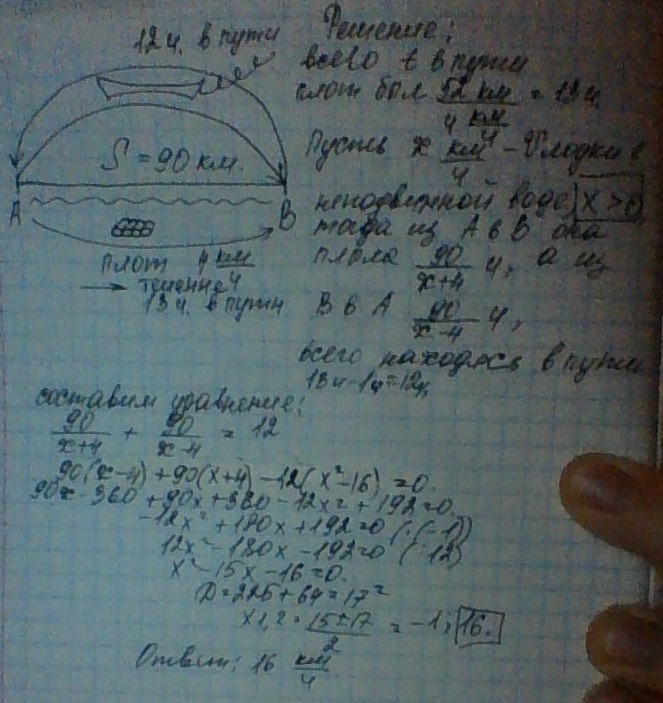 12 ч. в пути
S = 90 км.
A
B
плот 4 км/ч
течение
13 ч. в пути
Решение:
всего t в пути
плот был 52 км / 4 км/ч = 13 ч.
Пусть x км/ч - V лодки в
неподвижной воде, x > 0
тогда из A в B она
плыла 90/(x+4) ч, а из
B в A 90/(x-4) ч,
всего находясь в пути
13ч-1ч=12ч,
составим уравнение:
90/(x+4) + 90/(x-4) = 12
90(x-4)+90(x+4)-12(x²-16)=0.
90x-360+90x+360-12x²+192=0.
-12x²+180x+192=0 (:(-1))
12x²-180x-192=0 (:12)
x²-15x-16=0.
D=225+64=17²
x1,2=(15±17)/2 = -1; 16.
Ответ: 16 км/ч